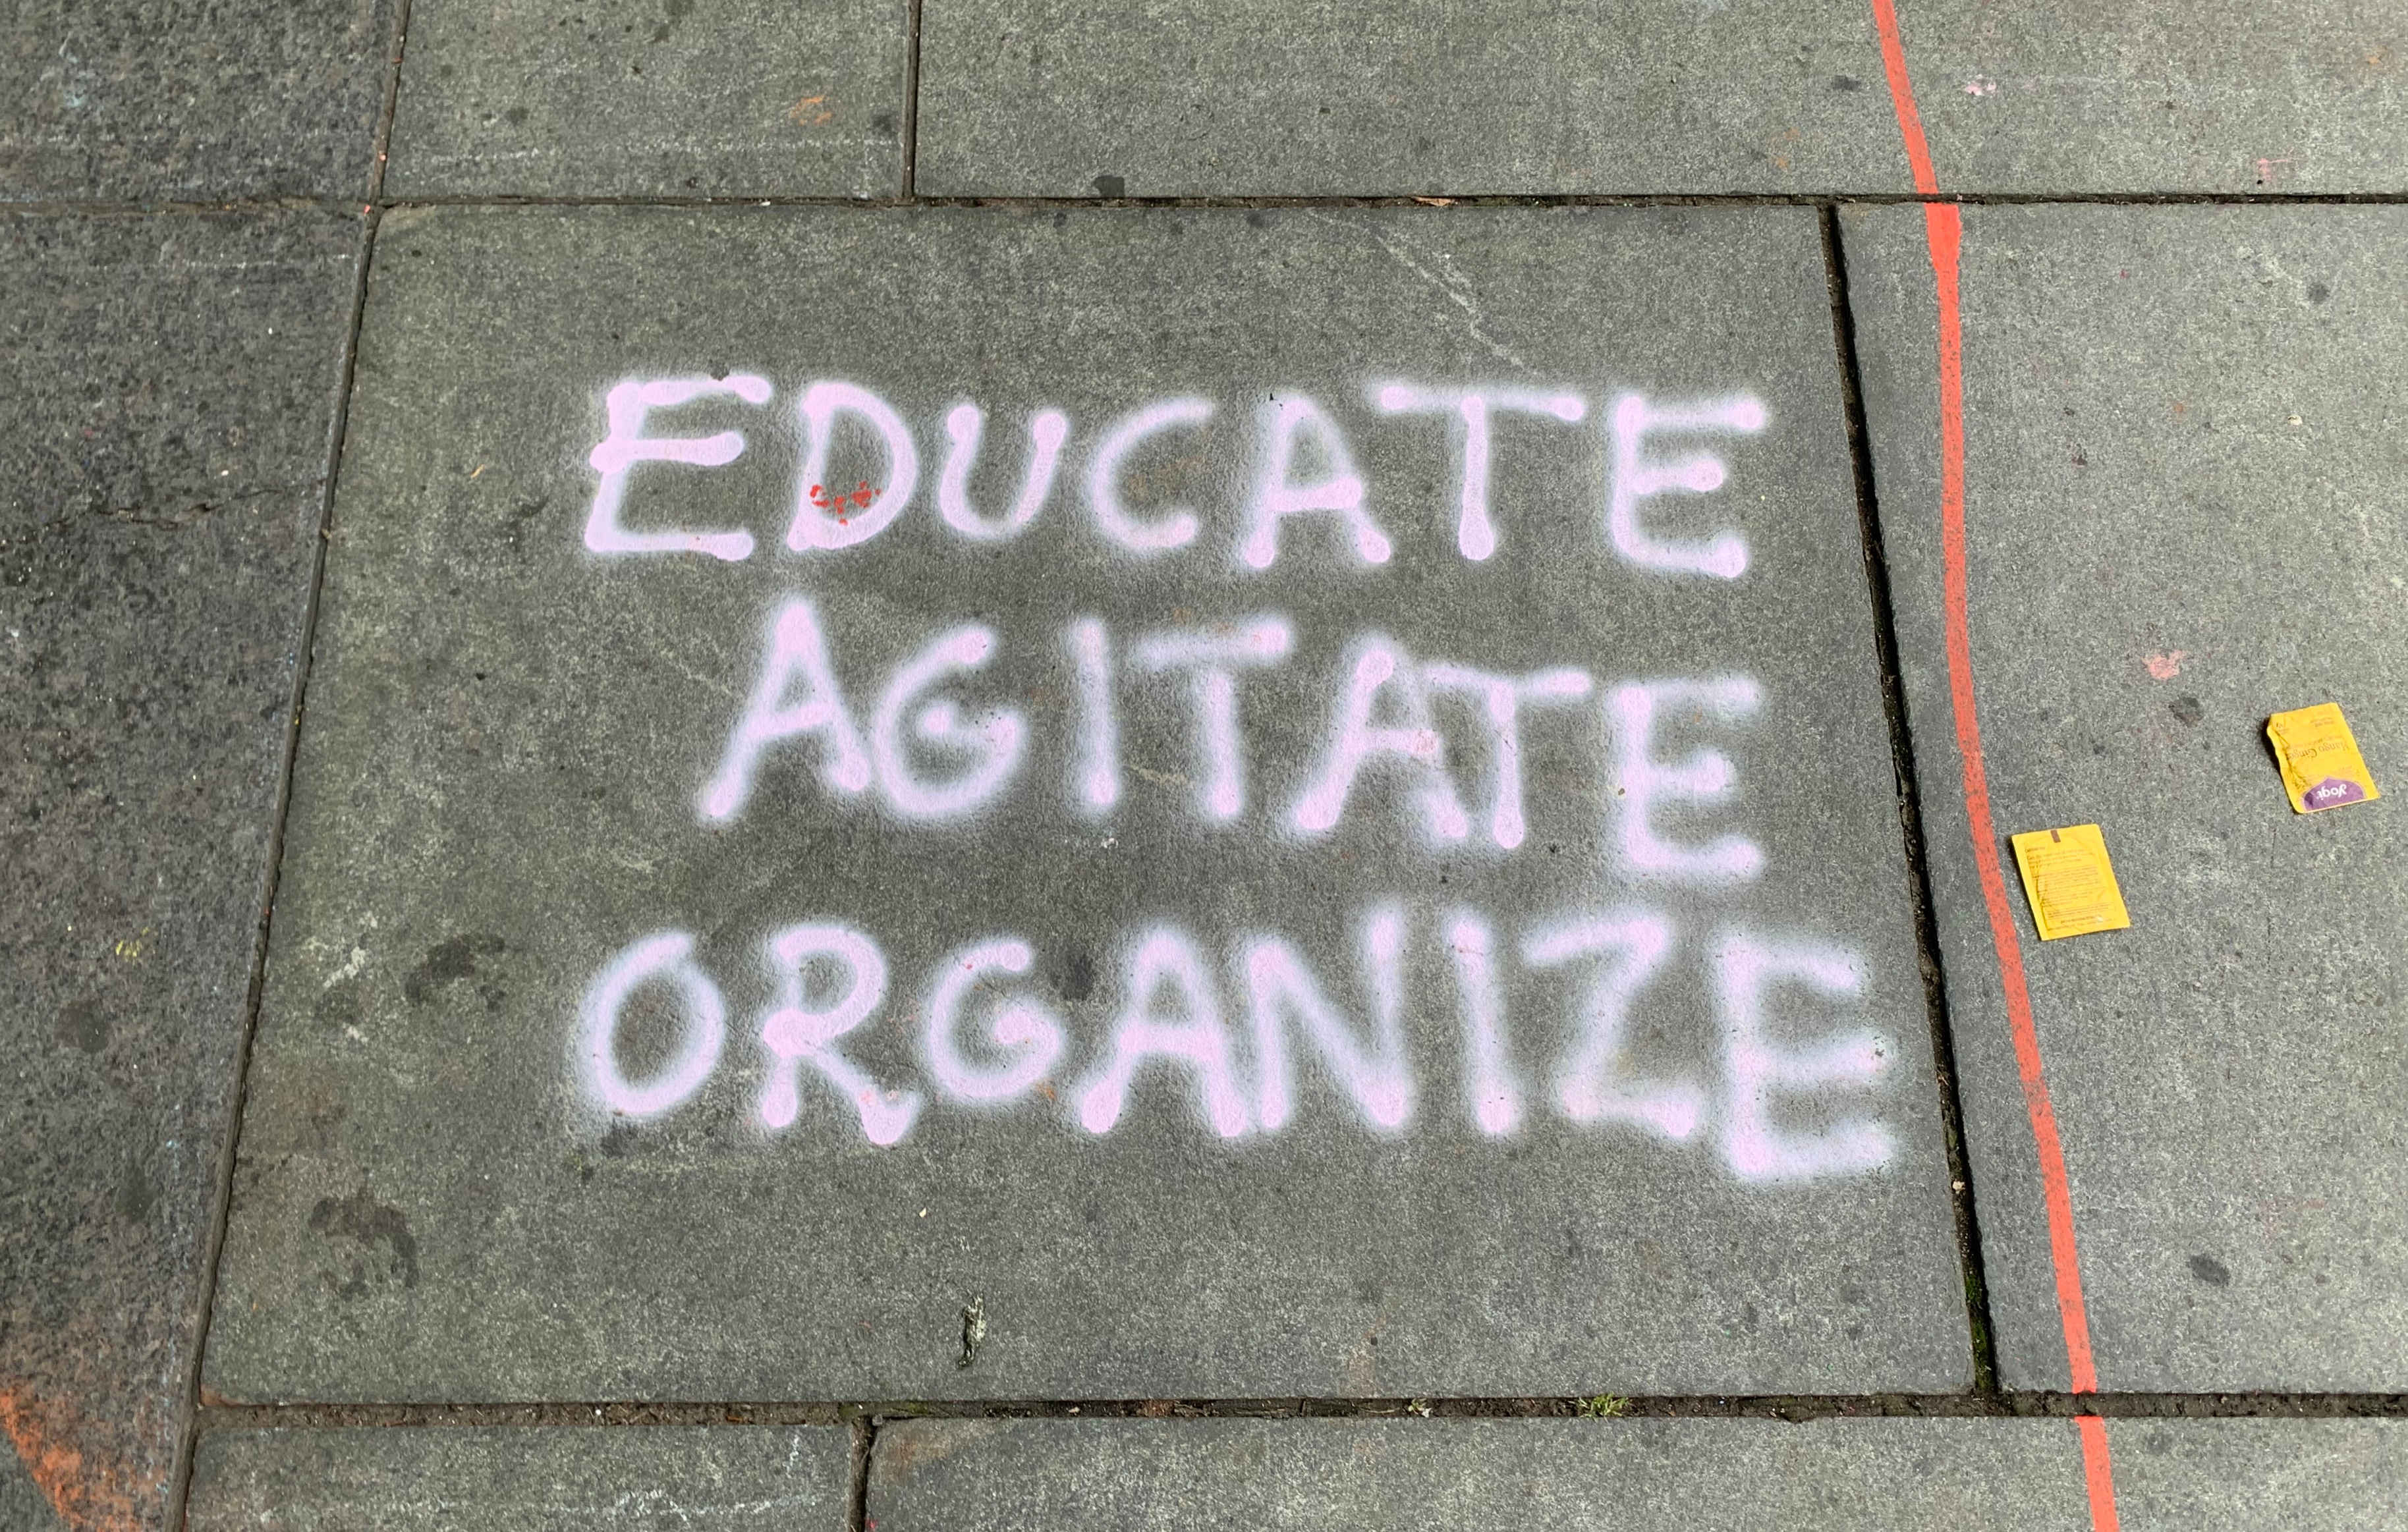 EDUCATE
AGITATE
ORGANIZE
yogi